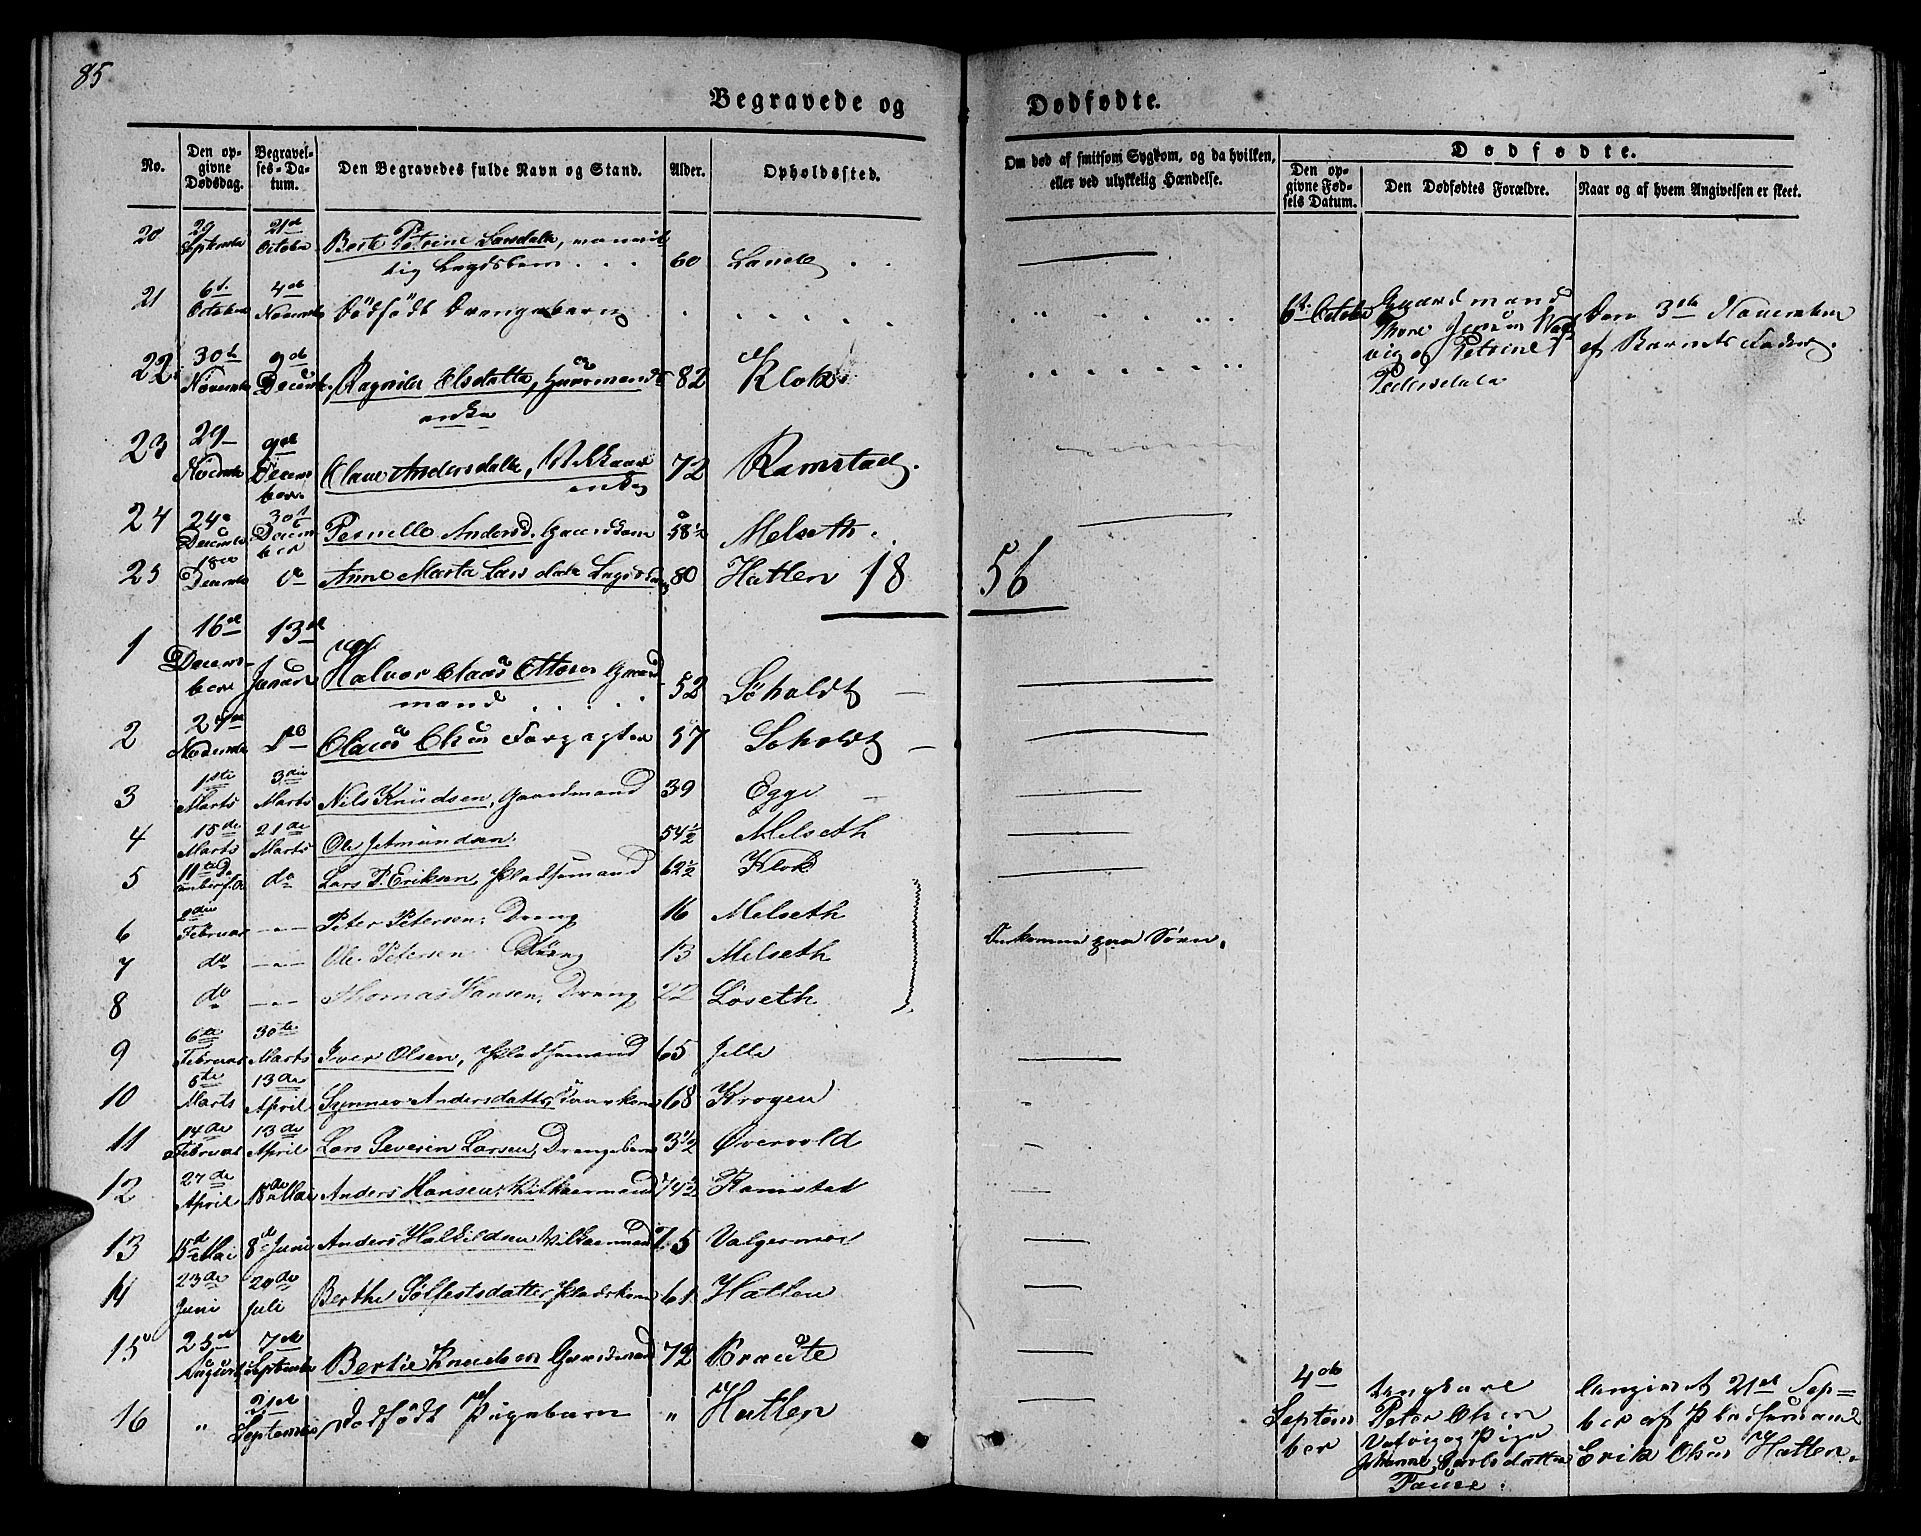 85
Begravede og Dødfødte.
No. Den opgivne Dødsdag. Begravelses-Datum. Den Begravedes fulde Navn og Stand. Alder. Opholdssted. Om død af smitsom Sygdom, og da hvilken, eller ved ulykkelig Hændelse. Dødfødte.
Den opgivne Fødsels Datum. Den Dødfødtes Forældre. Naar og af hvem Angivelsen er skeet.
20 29 Septembr 21de Octobr Berte Petrine Larsdatter, vanvittig Lægdsbarn 60 Lande
21 6t. Octobr 4de Novembr Dödfödt Drengebarn 6t. October Gaardmand Thore Jensen og Petrine Pedersdatter Den 3de November af Barnets Fader
22 30te Novembr 9de Decembr Ragnilde Olsdatter, Gaardmands enke 82 Klok
23 29 Novembr 9de December Olave Andersdatter, Vilkaarsenke 72 Ramstad.
24 24de Decembr 30t December Pernille Andersd. Gaardkone 58½ Melseth
25 18de Decembr do Anne Marta Larsdatter Lægdslem 80 Hatlen
18 56
1 16de December 13de Januar Halvor Claus Ottesen Gaardmand 52 Søholdt
2 24de Novembr do Claus Olsen Forpagter 57 Soholdt
3 1ste Marts 3die Marts Nils Knudsen, Gaardmand 39 Egge
4 15de Marts 21de Marts Ole Jetmundsen 54½ Melseth
5 do Lars P. Eriksen, Pladsemand 62½ Klok
6 2den Februar — Peter Petersen, Dreng 16 Melseth
7 do — Ole Petersen Dreng 13 Melseth Omkomne paa Söen.
8 do — Thomas Hansen, Dreng 22 Løseth
9 6te Februar 30te Marts Iver Olsen, Pladsemand 65 Jelle
10 5te Marts 13de April Synnev Andersdatter 68 Krogen
11 14de Februar 13de April Lars Severin Larsen, Drengebarn 3½ Overvold
12 27de April 18de Mai Anders Hansen, Vilkaarmand 74½ Ramstad
13 15d Mai 8de Juni Anders Halkildsen Vilkaarmand 75 Valgermo
14 23de Juni 20de Juli Berthe Sølfestsdatter, Pladskone 61 Hatlen
15 25de August 7de Septembr Bertie Knudsen Gaardmand 72 Braute
16 " 21de September Dodfödt Pigebarn " Hatlen 4de September Ungkarl Peter Olsen og Pige Johanne Carlsdatter angivet 21de September af Pladsemand Erik Olsen Hatlen.